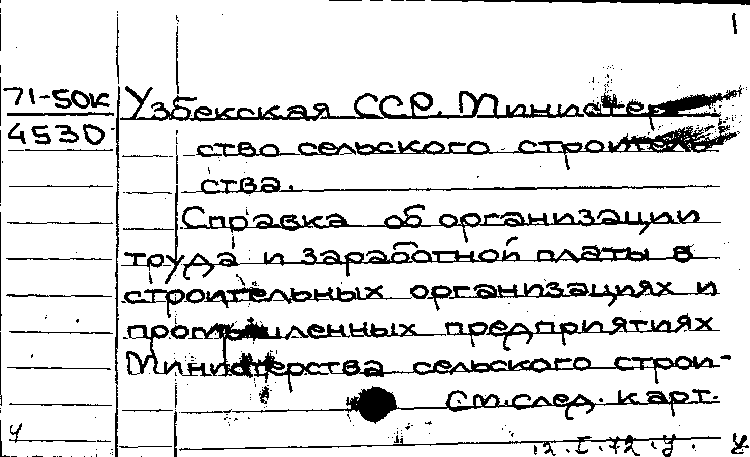 1
71-50к
4530
Узбекская ССР. Министер-
ство сельского строитель-
ства.
Справка об организации
труда и заработной платы в
строительных организациях и
промышленных предприятиях
Министерства сельского строи-
См. след. карт.
ч
12.I.72.У.